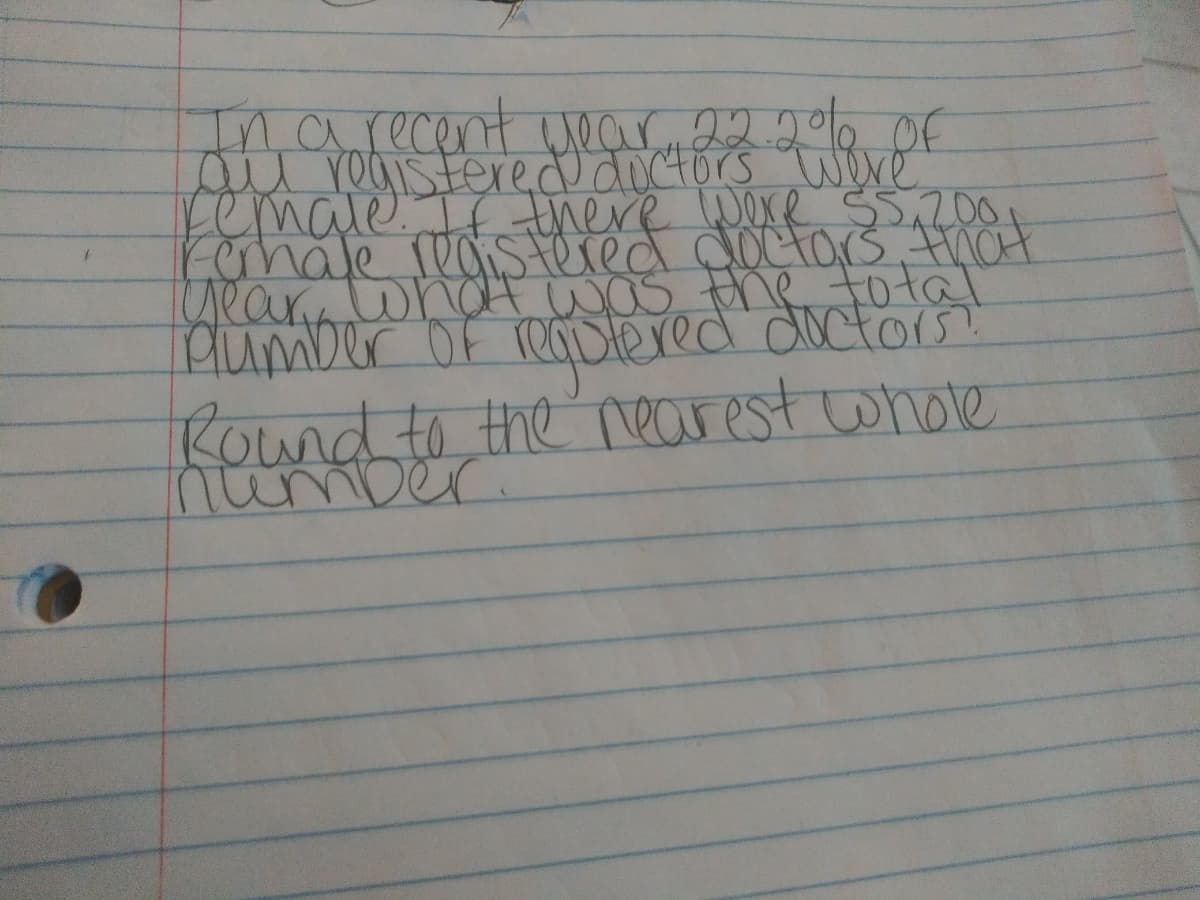 In a recent year, 22.2% of
all registered doctors were
female. If there were 55,200
female registered doctors that
year, what was the total
number of regutered doctors?
Round to the nearest whole
number.